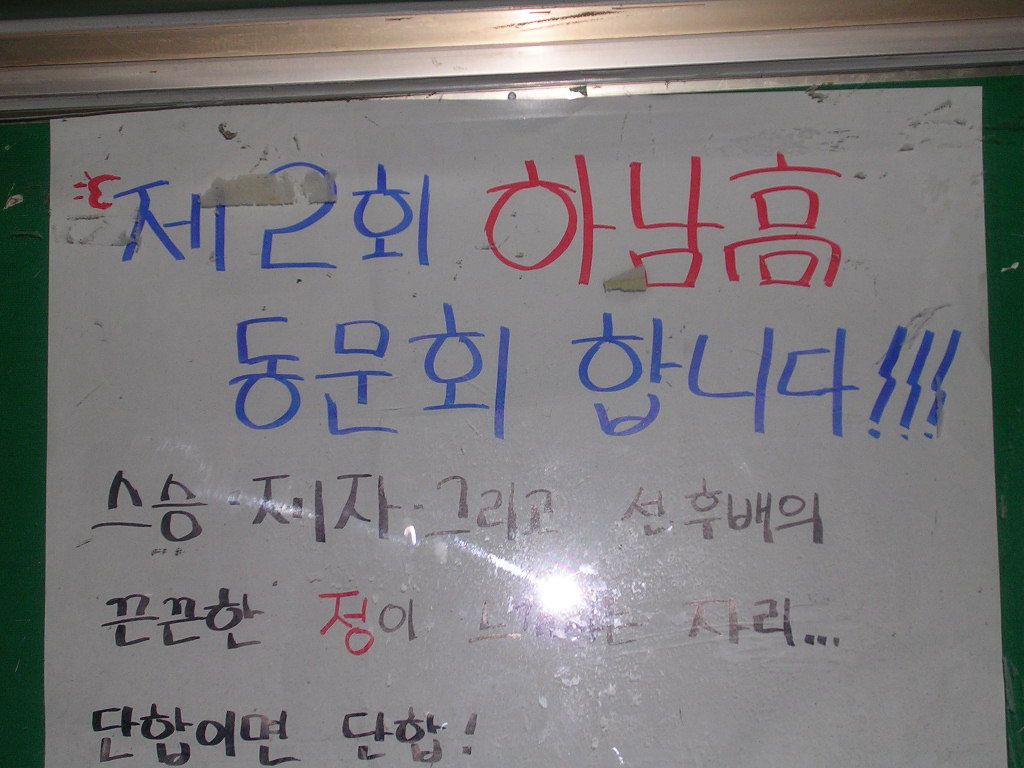 제2회 하남高
동문회 합니다!!!
스승·제자·그리고 선후배의
끈끈한 정이 느껴지는 자리...
단합이면 단합!